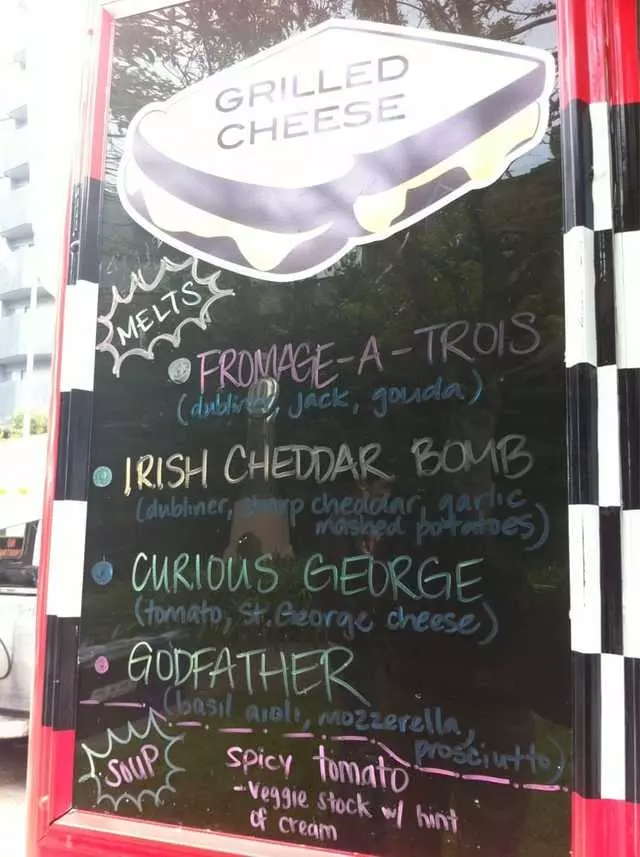 GRILLED
CHEESE
MELTS
FROMAGE-A-TROIS
(dubliner, jack, gouda)
IRISH CHEDDAR BOMB
(dubliner, sharp cheddar, garlic
mashed potatoes)
CURIOUS GEORGE
(tomato, St. George cheese)
GODFATHER
(basil aioli, mozzerella,
prosciutto)
SOUP
spicy tomato
-veggie stock w/ hint
of cream